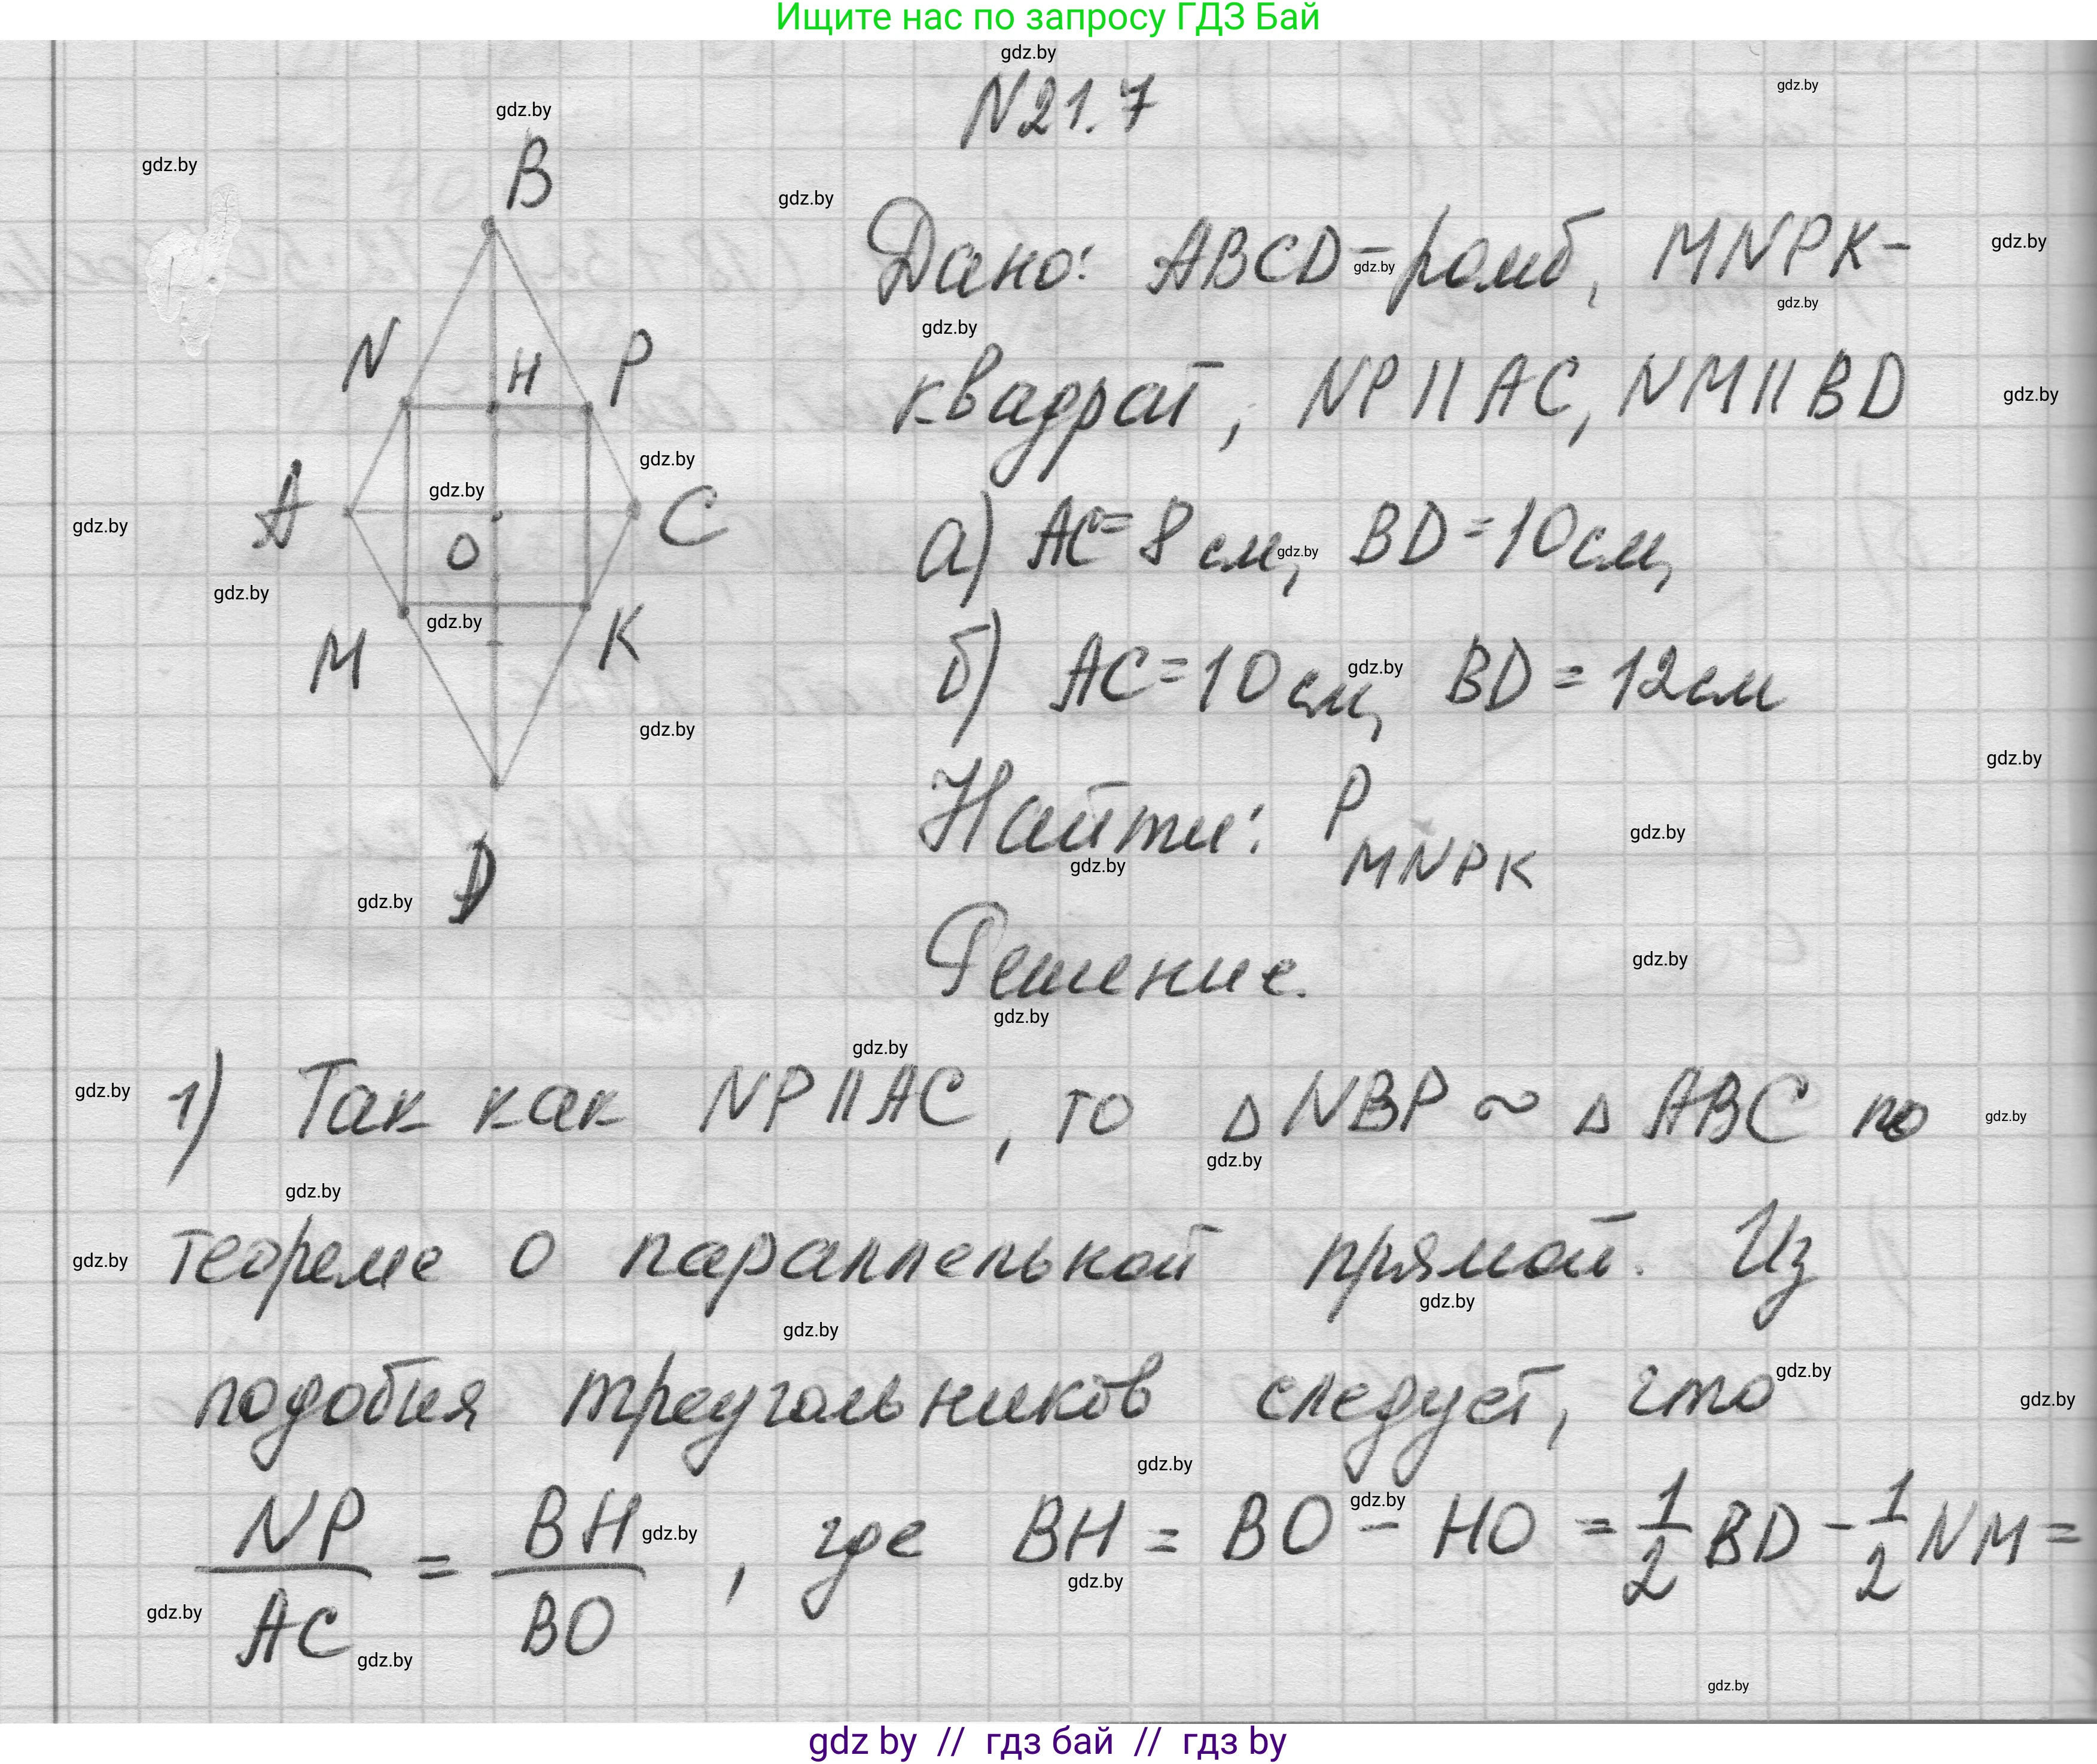 Ищите нас по запросу ГДЗ Бай
N21.7
Дано: ABCD - ромб, MNPK-
квадрат, NP || AC, NM || BD
а) AC = 8 см, BD = 10 см,
б) AC = 10 см, BD = 12 см
Найти: P MNPK
Решение.
B
N
H
P
A
O
C
M
K
D
1) Так как NP || AC, то △ NBP ~ △ ABC по
теореме о параллельной прямой. Из
подобия треугольников следует, что
NP/AC = BH/BO, где BH = BO - HO = 1/2 BD - 1/2 NM =
gdz by // гдз бай // гдз by
gdz.by